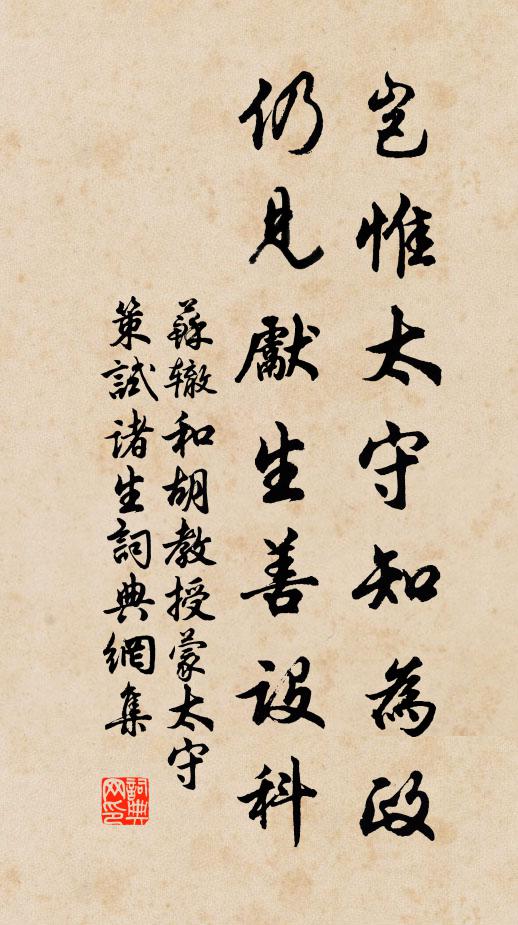 岂惟太守知為政
仍見獻生善設科
蘇辙和胡教授蒙太守
策試诸生詞典網集
詞典网印